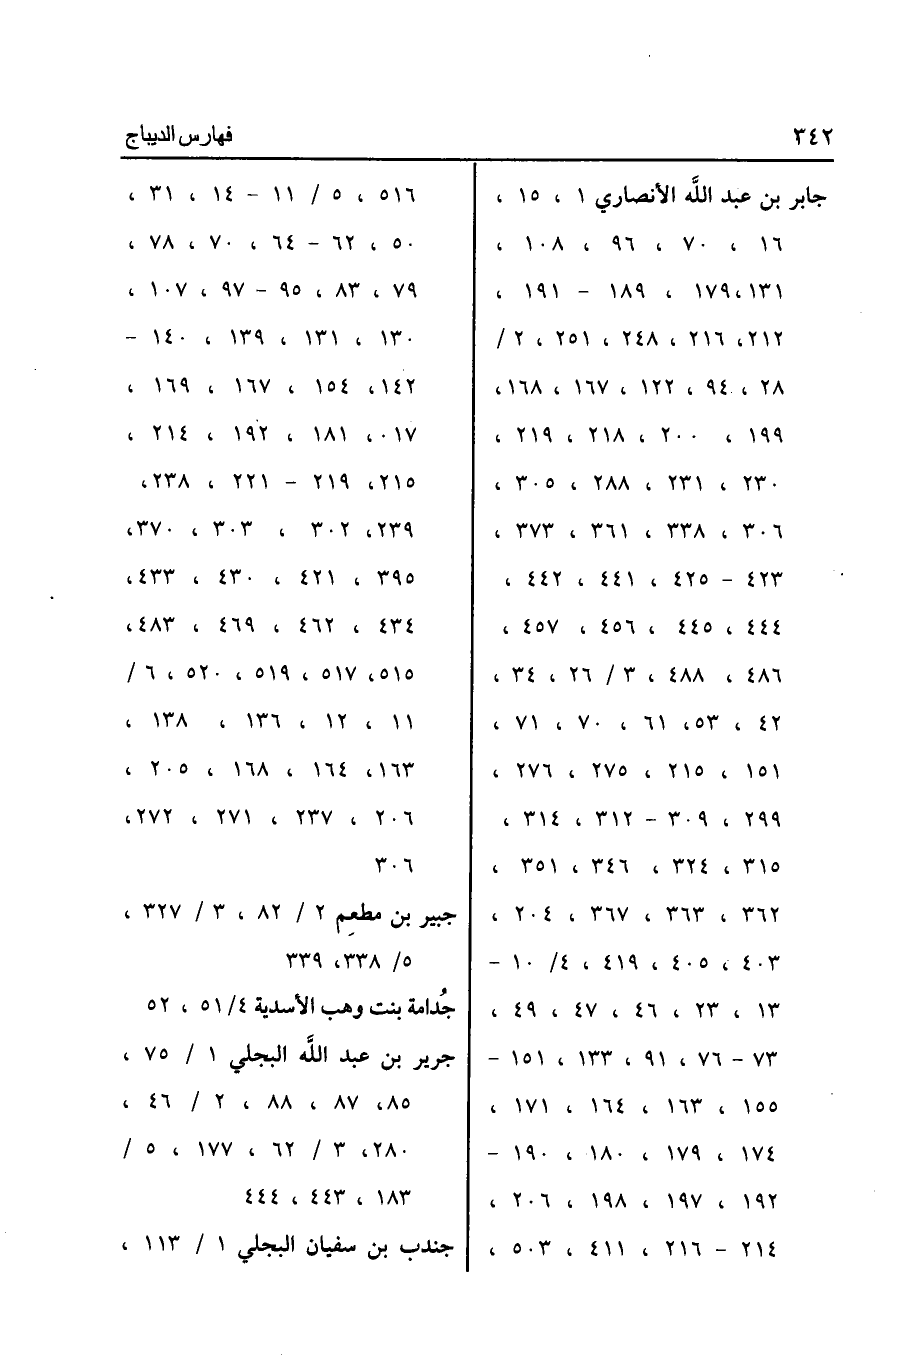 ٣٤٢
فهارس الديباج
جابر بن عبد اللَّه الأنصاري ١ ، ١٥ ،
١٦ ، ٧٠ ، ٩٦ ، ١٠٨ ،
١٣١،١٧٩ ، ١٨٩ – ١٩١ ،
٢١٢، ٢١٦ ، ٢٤٨ ، ٢٥١ ، ٢ /
٢٨ ، ٩٤ ، ١٢٢ ، ١٦٧ ، ١٦٨،
١٩٩ ، ٢٠٠ ، ٢١٨ ، ٢١٩ ،
٢٣٠ ، ٢٣١ ، ٢٨٨ ، ٣٠٥ ،
٣٠٦ ، ٣٣٨ ، ٣٦١ ، ٣٧٣ ،
٤٢٣ – ٤٢٥ ، ٤٤١ ، ٤٤٢ ،
٤٤٤ ، ٤٤٥ ، ٤٥٦ ، ٤٥٧ ،
٤٨٦ ، ٤٨٨ ، ٣ / ٢٦ ، ٣٤ ،
٤٢ ، ٥٣، ٦١ ، ٧٠ ، ٧١ ،
١٥١ ، ٢١٥ ، ٢٧٥ ، ٢٧٦ ،
٢٩٩ ، ٣٠٩ – ٣١٢ ، ٣١٤ ،
٣١٥ ، ٣٢٤ ، ٣٤٦ ، ٣٥١ ،
٣٦٢ ، ٣٦٣ ، ٣٦٧ ، ٢٠٤ ،
٤٠٣ ، ٤٠٥ ، ٤١٩ ، ٤/ ١٠ –
١٣ ، ٢٣ ، ٤٦ ، ٤٧ ، ٤٩ ،
٧٣ – ٧٦ ، ٩١ ، ١٣٣ ، ١٥١ –
١٥٥ ، ١٦٣ ، ١٦٤ ، ١٧١ ،
١٧٤ ، ١٧٩ ، ١٨٠ ، ١٩٠ –
١٩٢ ، ١٩٧ ، ١٩٨ ، ٢٠٦ ،
٢١٤ – ٢١٦ ، ٤١١ ، ٥٠٣ ،
٥١٦ ، ٥ / ١١ – ١٤ ، ٣١ ،
٥٠ ، ٦٢ – ٦٤ ، ٧٠ ، ٧٨ ،
٧٩ ، ٨٣ ، ٩٥ – ٩٧ ، ١٠٧ ،
١٣٠ ، ١٣١ ، ١٣٩ ، ١٤٠ –
١٤٢، ١٥٤ ، ١٦٧ ، ١٦٩ ،
٠١٧، ١٨١ ، ١٩٢ ، ٢١٤ ،
٢١٥، ٢١٩ – ٢٢١ ، ٢٣٨،
٢٣٩، ٣٠٢ ، ٣٠٣ ، ٣٧٠،
٣٩٥ ، ٤٢١ ، ٤٣٠ ، ٤٣٣،
٤٣٤ ، ٤٦٢ ، ٤٦٩ ، ٤٨٣،
٥١٥، ٥١٧ ، ٥١٩ ، ٥٢٠ ، ٦ /
١١ ، ١٢ ، ١٣٦ ، ١٣٨ ،
١٦٣، ١٦٤ ، ١٦٨ ، ٢٠٥ ،
٢٠٦ ، ٢٣٧ ، ٢٧١ ، ٢٧٢،
٣٠٦
جبير بن مطعمِ ٢ / ٨٢ ، ٣ / ٣٢٧ ،
٥/ ٣٣٨، ٣٣٩
جُدامة بنت وهب الأسدية ٤/ ٥١ ، ٥٢
جرير بن عبد اللَّه البجلي ١ / ٧٥ ،
٨٥، ٨٧ ، ٨٨ ، ٢ / ٤٦ ،
٢٨٠، ٣ / ٦٢ ، ١٧٧ ، ٥ /
١٨٣ ، ٤٤٣ ، ٤٤٤
جندب بن سفيان البجلي ١ / ١١٣ ،